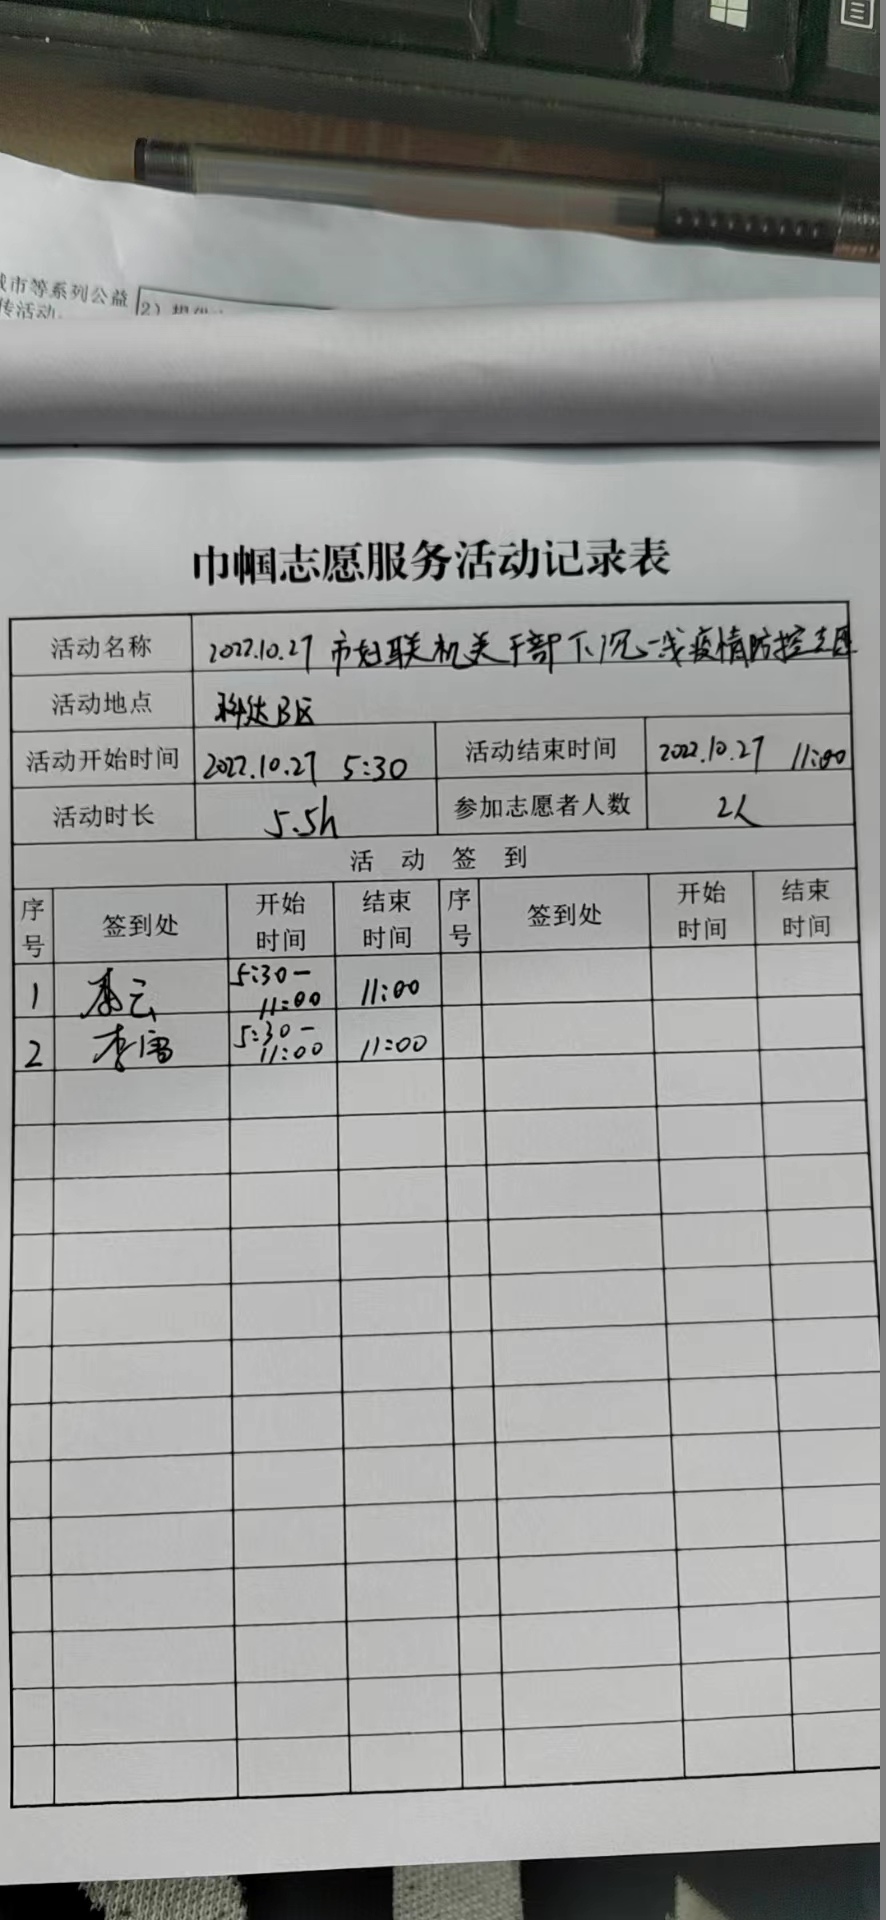 城市等系列公益
传活动.
2)
巾帼志愿服务活动记录表
活动名称 2022.10.27 市妇联机关干部下沉一线疫情防控志愿
活动地点 科达B区
活动开始时间 2022.10.27 5:30 活动结束时间 2022.10.27 11:00
活动时长 5.5h 参加志愿者人数 2人
活动签到
序号 签到处 开始时间 结束时间 序号 签到处 开始时间 结束时间
1 5:30-11:00 11:00
2 5:30-11:00 11:00